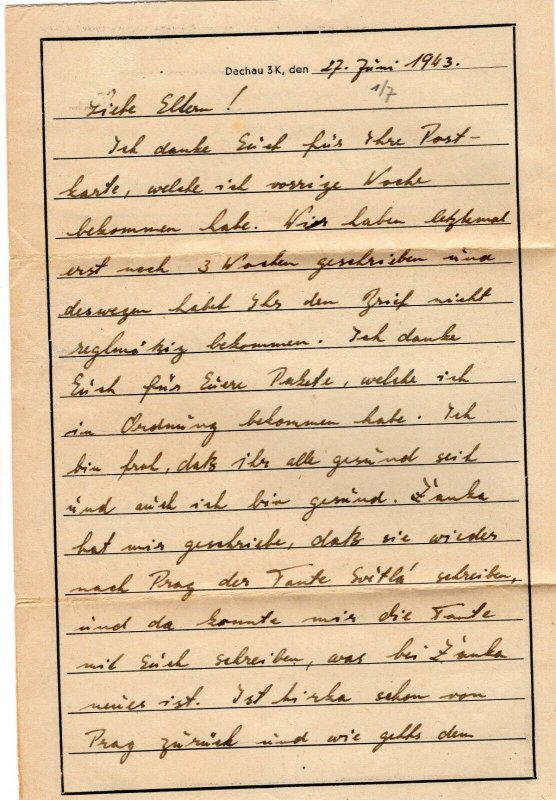 Dachau 3K, den 27. Juni 1943.
1/7
Liebe Eltern!
Ich danke Euch für Ihre Post-
karte, welche ich vorrige Woche
bekommen habe. Wir haben letztemal
erst nach 3 Wochen geschrieben und
deswegen habet Ihr den Brief nicht
reglmäßig bekommen. Ich danke
Euch für Euere Pakete, welche ich
in Ordnung bekommen habe. Ich
bin froh, daß ihr alle gesund seit
und auch ich bin gesund. Zánka
hat mir geschriebe, daß sie wieder
nach Prag der Tante Světlá schreiben,
und da konnte mir die Tante
mit Euch schreiben, was bei Zánka
neues ist. Ist Mirka schon von
Prag zurück und wie gehts dem